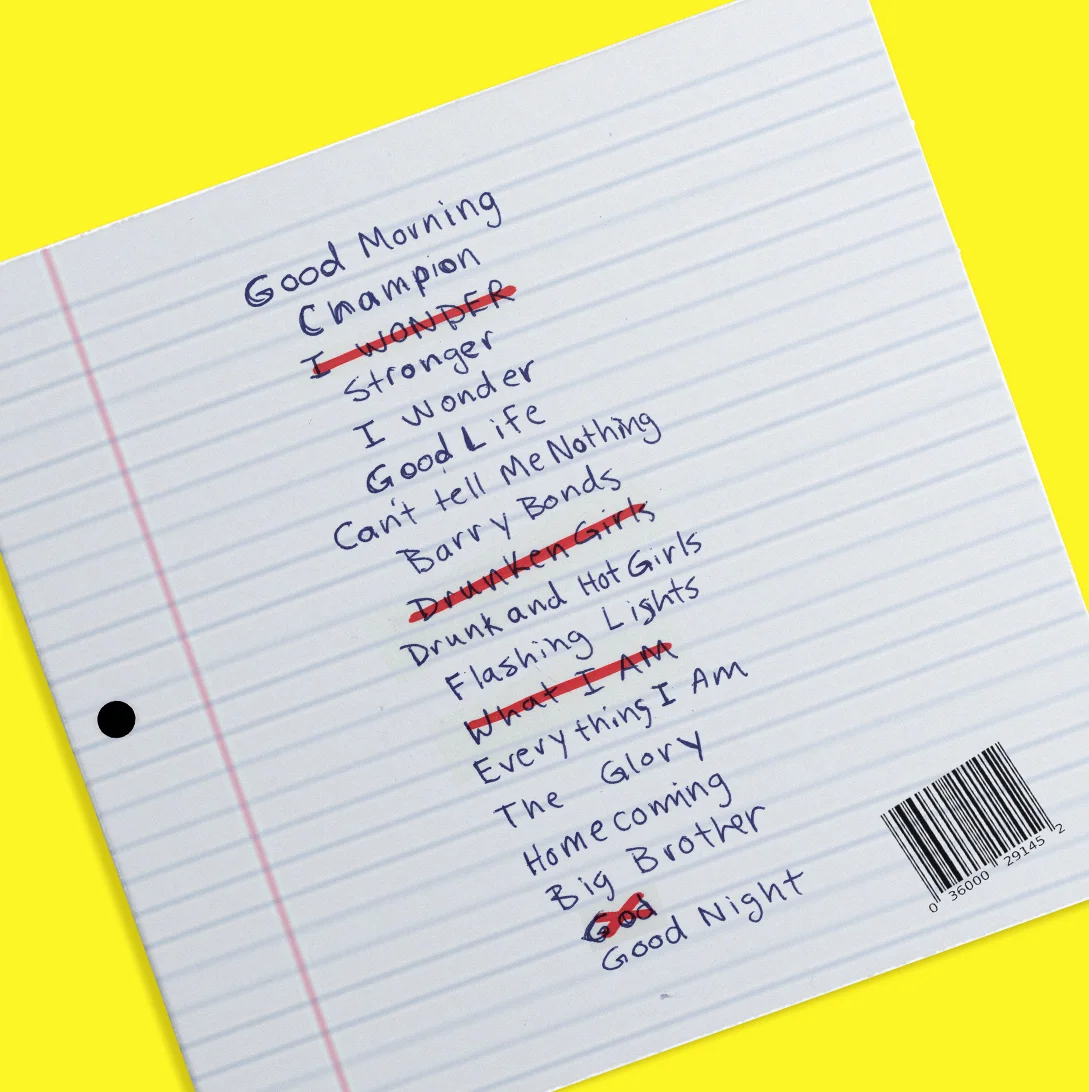 Good Morning
Champion
I WONDER
Stronger
I Wonder
Good Life
Can't tell Me Nothing
Barry Bonds
Drunken Girls
Drunk and Hot Girls
Flashing Lights
What I AM
Everything I Am
The Glory
Homecoming
Big Brother
God
Good Night
0 36000 29145 2